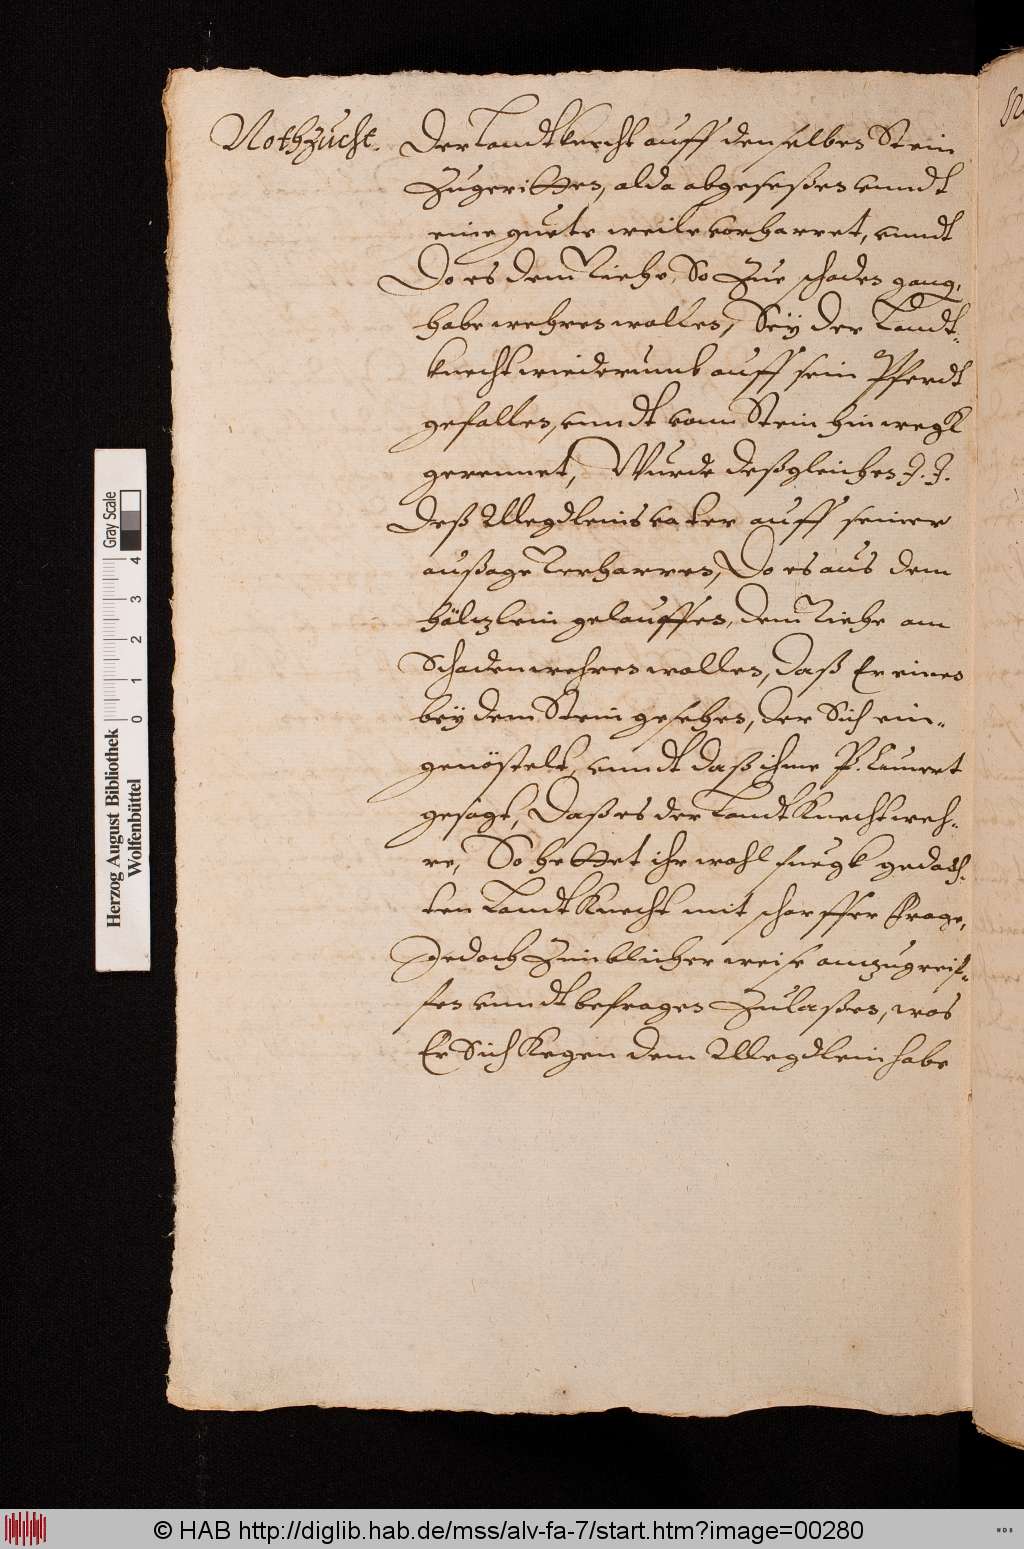 Nothzucht.
Der Landtknecht auff denselben Stein
Zugeritten, alda abgeseßen vnndt
eine guete weile vorharret, vnndt
Do es dem Viehe, So Zue schaden gang,
habe wehren wollen, Sey der Landt-
knecht wiederumb auff sein Pferdt
gefallen, vnndt vom Stein hinwegk
gerennet, Wurde deßgleichen J. J.
deß Megdleins vater auff seiner
außage verharren, Do es aus dem
höltzlein gelauffen, dem Viehe am
Schaden wehren wollen, daß Er einen
bey dem Stein gesehen, der Sich ein-
genöstelt, vnndt daß ihme P.
gesagt, Daß es der Landtknecht weh-
re, So hettet ihr wohl fuegk gedach-
ten Landtknecht mit scharffer frage,
Jedoch Zimblicher weise anzugreif-
fen vnndt befragen Zulaßen, was
Er Sich kegen dem Megdlein habe
Herzog August Bibliothek
Wolfenbüttel
0 1 2 3 4
Gray Scale
© HAB http://diglib.hab.de/mss/alv-fa-7/start.htm?image=00280